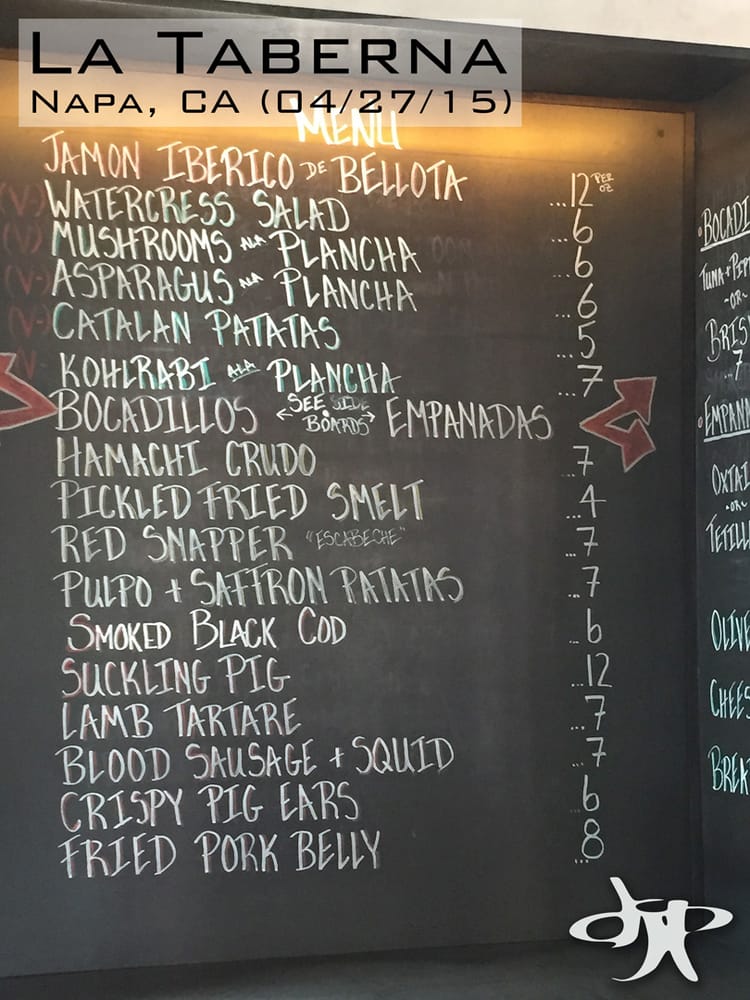 LA TABERNA
NAPA, CA (04/27/15)
MENU
JAMON IBERICO DE BELLOTA ...12 PER OZ
(V) WATERCRESS SALAD ...6
(V) MUSHROOMS ALA PLANCHA ...6
(V) ASPARAGUS ALA PLANCHA ...6
(V) CATALAN PATATAS ...5
V KOHLRABI ALA PLANCHA ...7
BOCADILLOS ← SEE SIDE BOARDS → EMPANADAS
HAMACHI CRUDO ...7
PICKLED FRIED SMELT ...4
RED SNAPPER "ESCABECHE" ...7
PULPO + SAFFRON PATATAS ...7
SMOKED BLACK COD ...6
SUCKLING PIG ...12
LAMB TARTARE ...7
BLOOD SAUSAGE + SQUID ...7
CRISPY PIG EARS ...6
FRIED PORK BELLY ...8
BOCADI
TUNA + PIP
-OR-
BRIS
7
EMPAN
OXTAI
-OR-
TETILL
OLIVE
CHEES
BREA